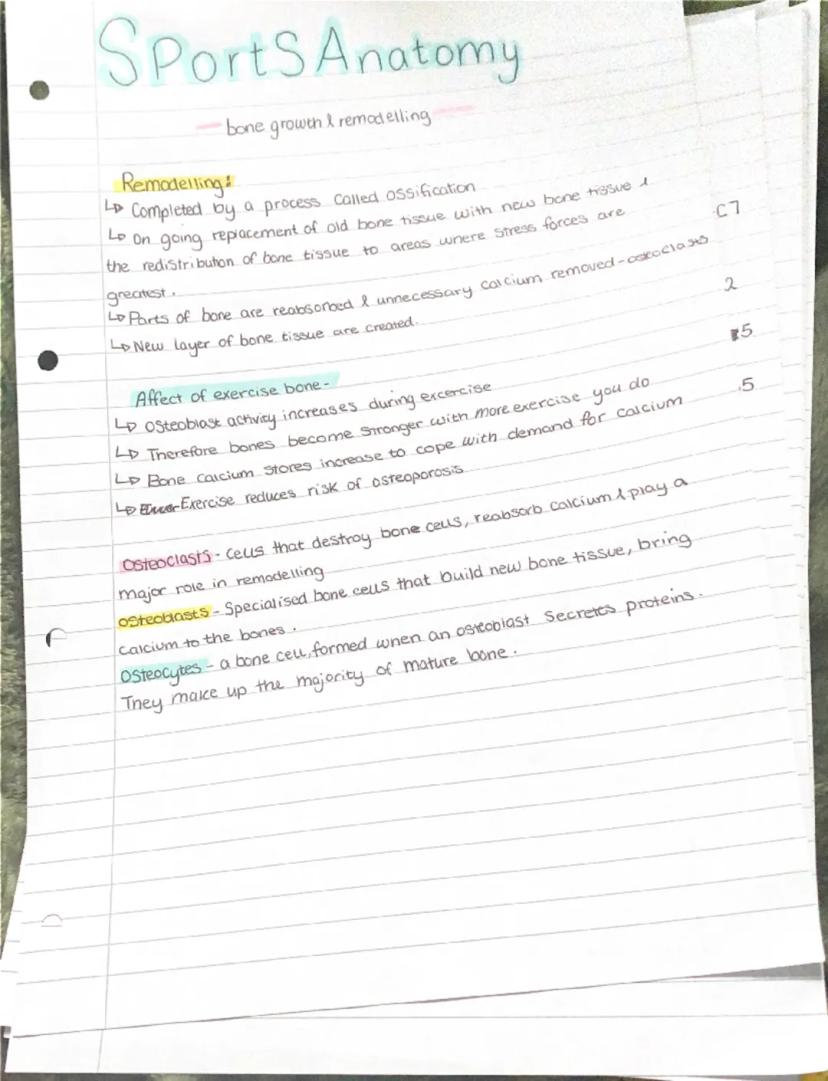 SPortSAnatomy
- bone growth & remodelling -
Remodelling:
↳ Completed by a process called ossification
↳ On going replacement of old bone tissue with new bone tissue &
the redistribution of bone tissue to areas where stress forces are
greatest.
↳ Parts of bone are reabsorbed & unnecessary calcium removed - osteoclasts
↳ New layer of bone tissue are created.
C7
2
5
.5
Affect of exercise bone -
↳ Osteoblast activity increases during excercise
↳ Therefore bones become stronger with more exercise you do
↳ Bone calcium stores increase to cope with demand for calcium
↳ Exercise reduces risk of osteoporosis
Osteoclasts - cells that destroy bone cells, reabsorb calcium & play a
major role in remodelling
osteoblasts - Specialised bone cells that build new bone tissue, bring
calcium to the bones.
Osteocytes - a bone cell, formed when an osteoblast secretes proteins.
They make up the majority of mature bone.